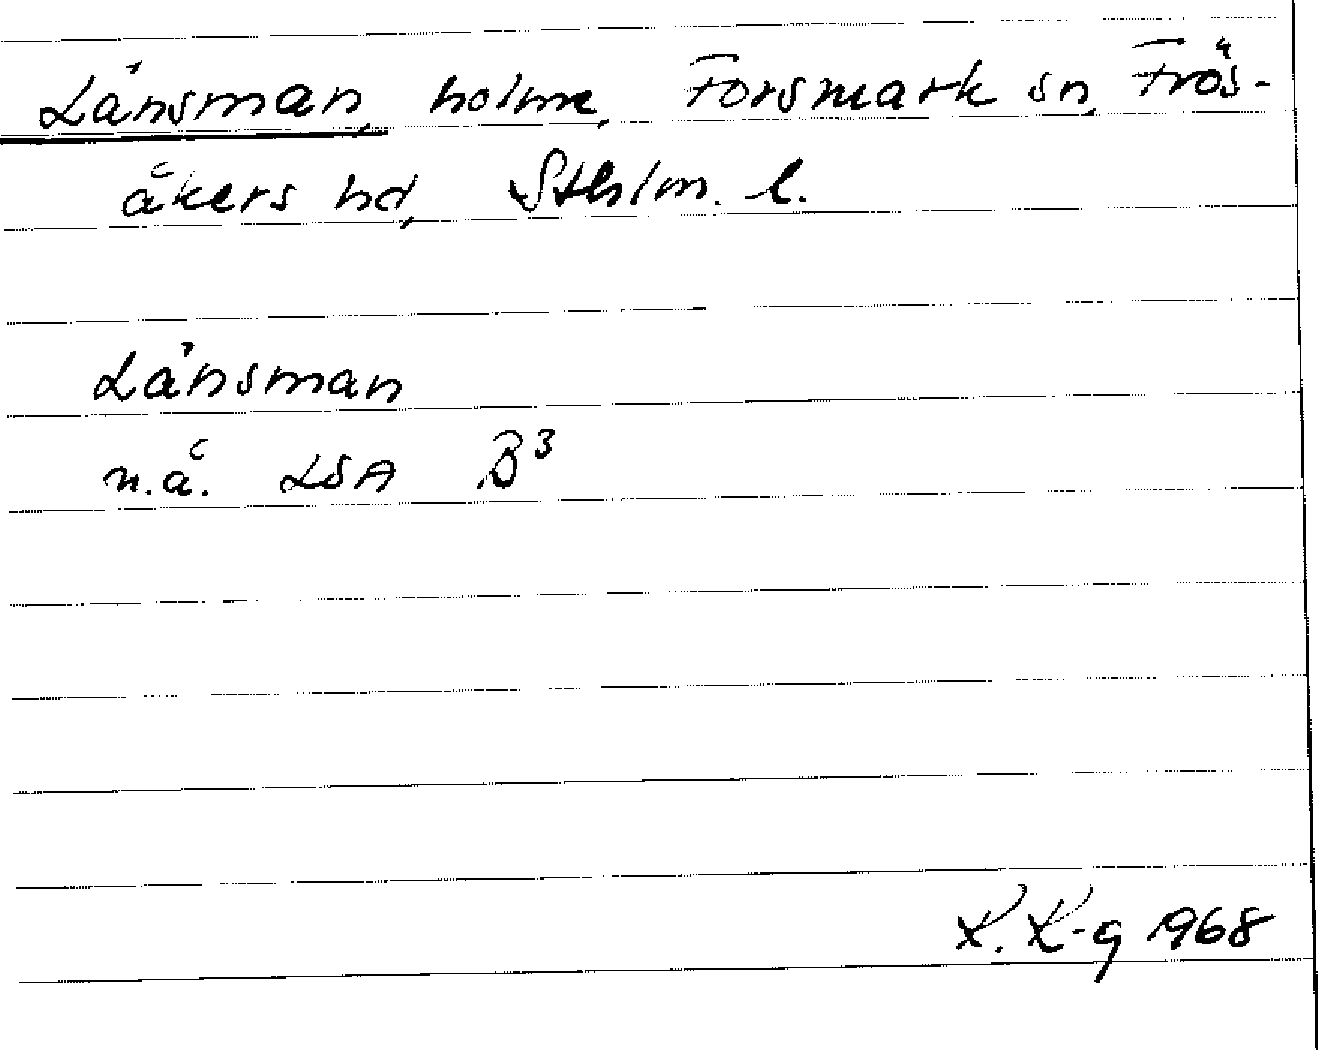 Länsman, holme, Forsmark sn, Frös-
åkers hd, Sthlm. l.
Länsman
n.å. LSA B³
K. K-g 1968